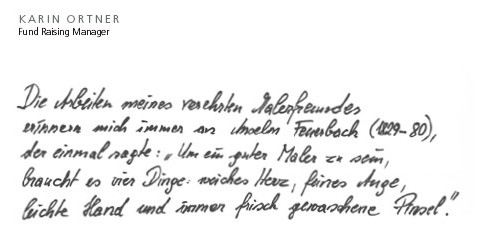 KARIN ORTNER
Fund Raising Manager
Die Arbeiten meines verehrten Malerfreundes
erinnern mich immer an Anselm Feuerbach (1829–80),
der einmal sagte: „Um ein guter Maler zu sein,
braucht es vier Dinge: weiches Herz, feines Auge,
leichte Hand und immer frisch gewaschene Pinsel."